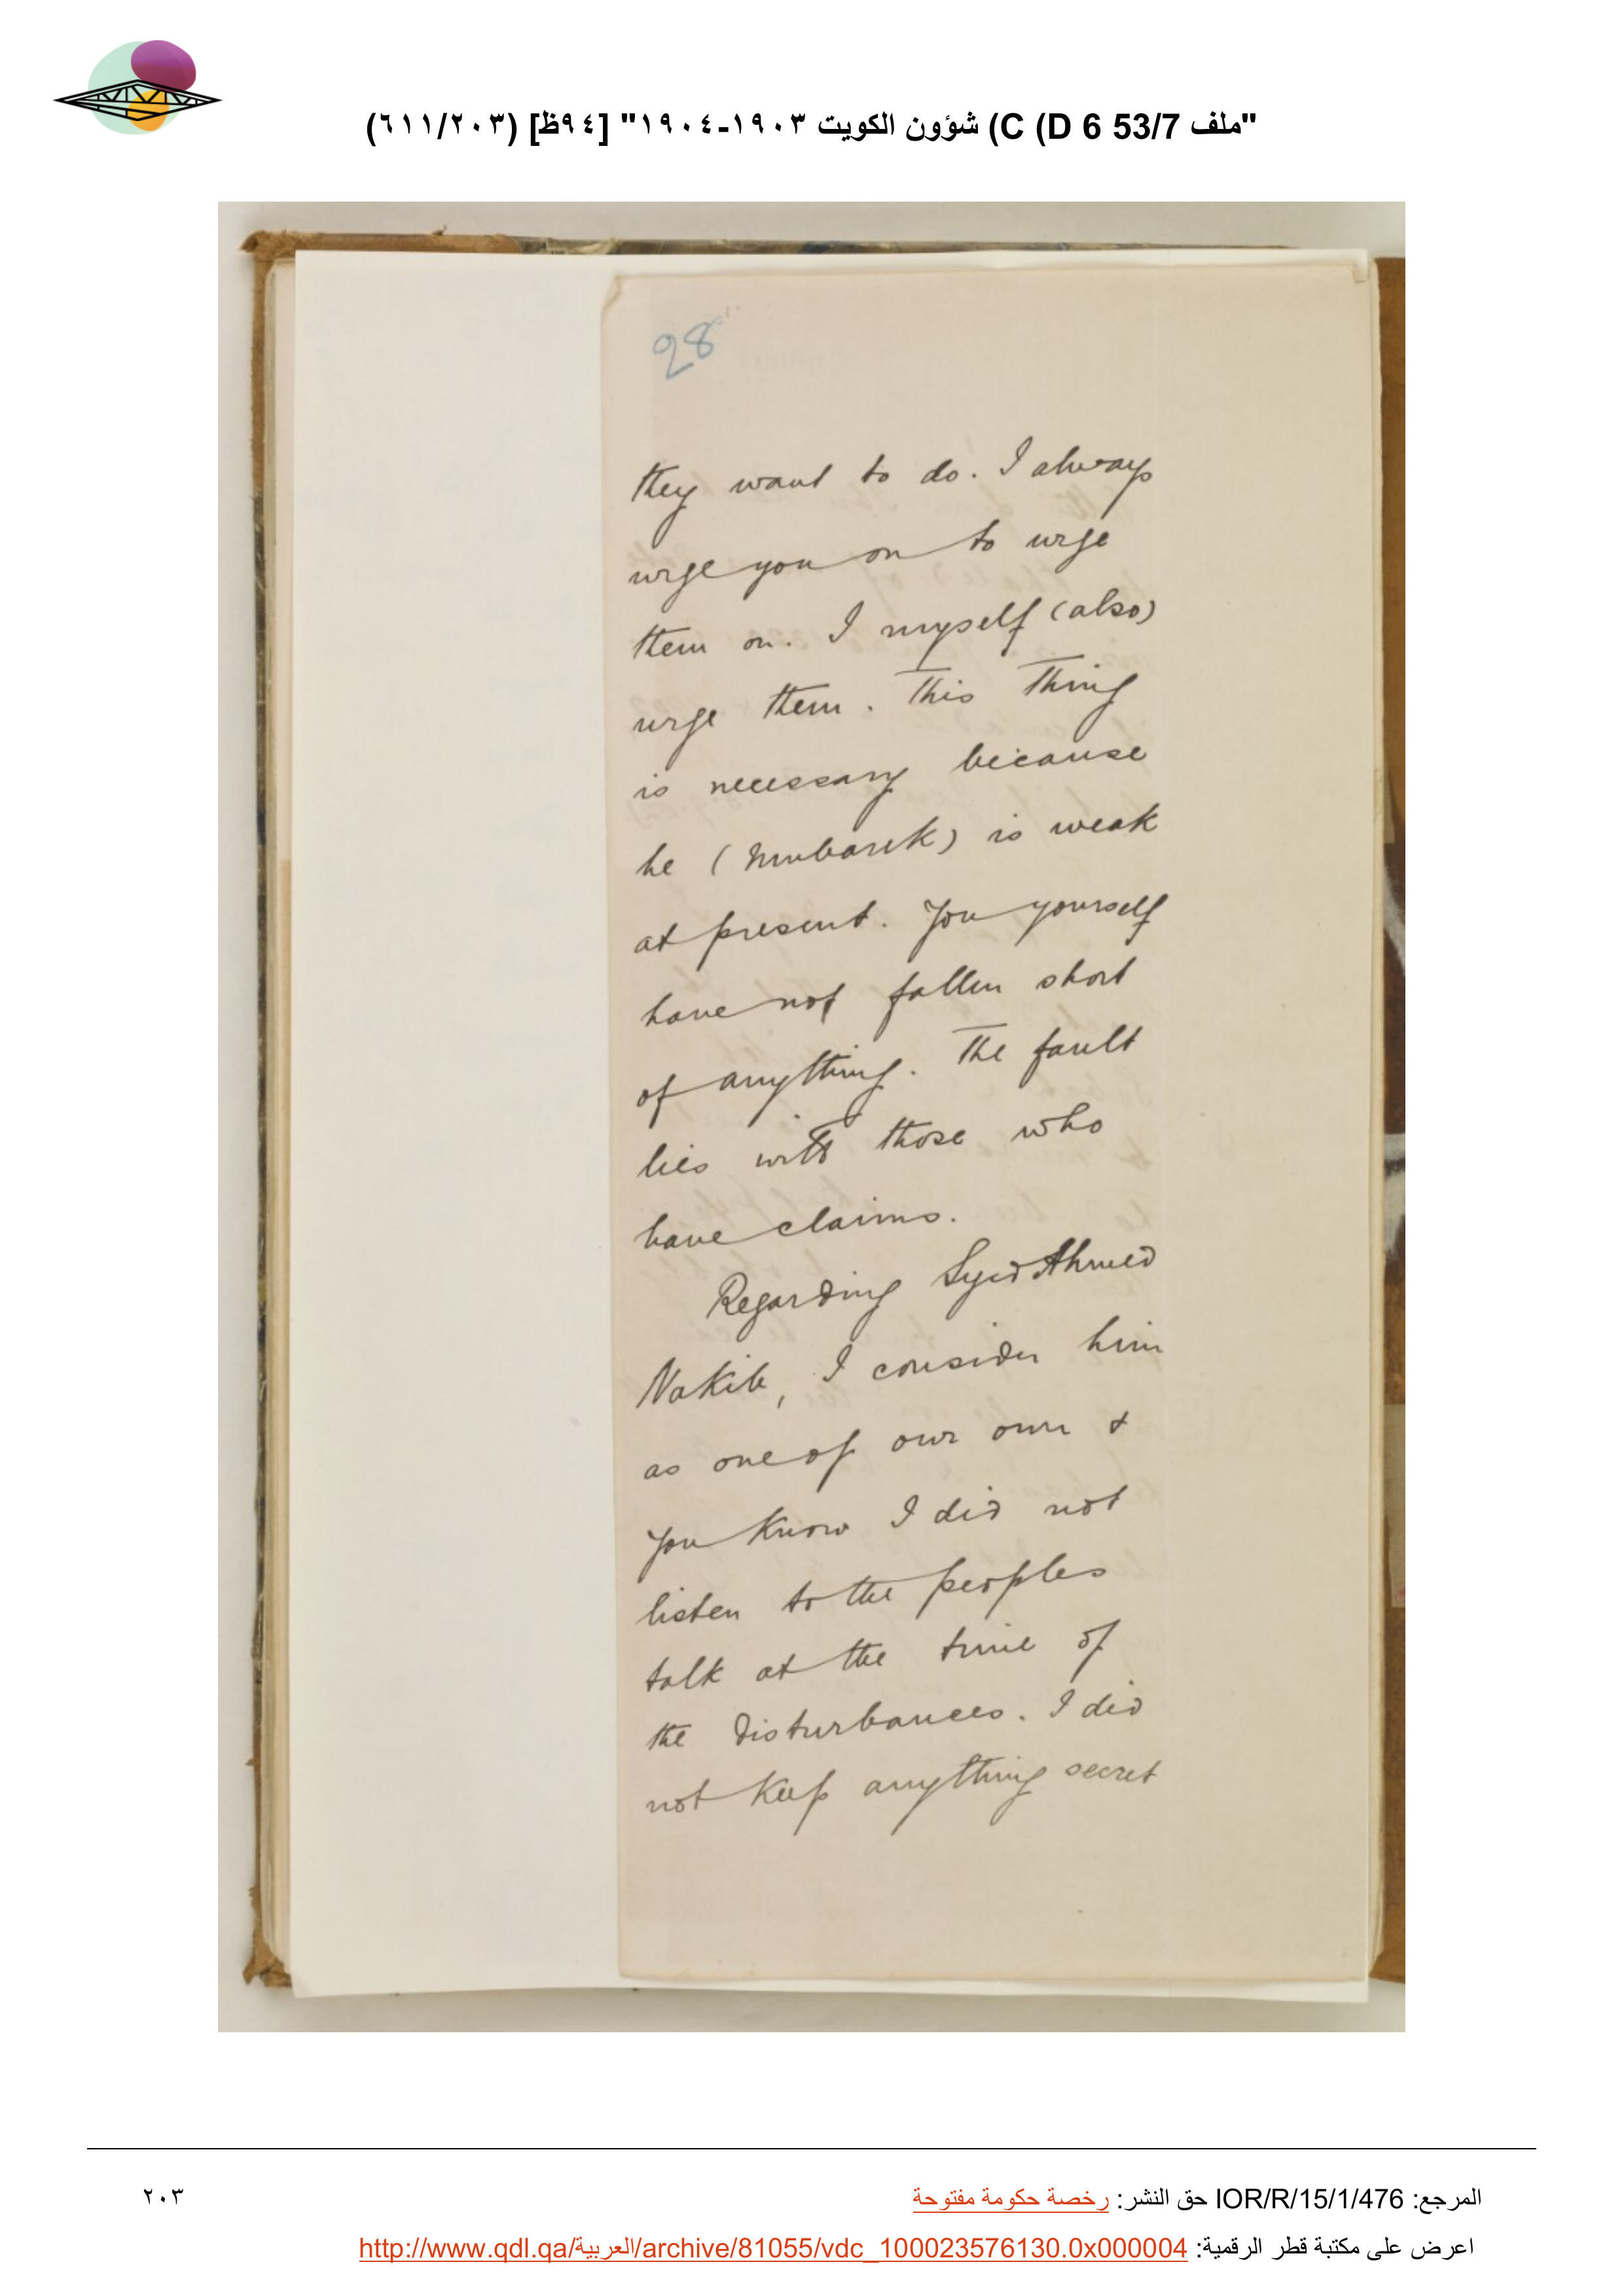 "ملف 53/7 C (D 6) شؤون الكويت ١٩٠٣-١٩٠٤" [٩٤ظ] (٦١١/٢٠٣)
28
they want to do. I always
urge you on to urge
them on. I myself (also)
urge them. This thing
is necessary because
he (Mubarek) is weak
at present. You yourself
have not fallen short
of anything. The fault
lies with those who
have claims.
Regarding Syed Ahmed
Nakib, I consider him
as one of our own &
you know I did not
listen to the peoples
talk at the time of
the disturbances. I did
not keep anything secret
المرجع: IOR/R/15/1/476 حق النشر: رخصة حكومة مفتوحة
٢٠٣
اعرض على مكتبة قطر الرقمية: http://www.qdl.qa/العربية/archive/81055/vdc_100023576130.0x000004